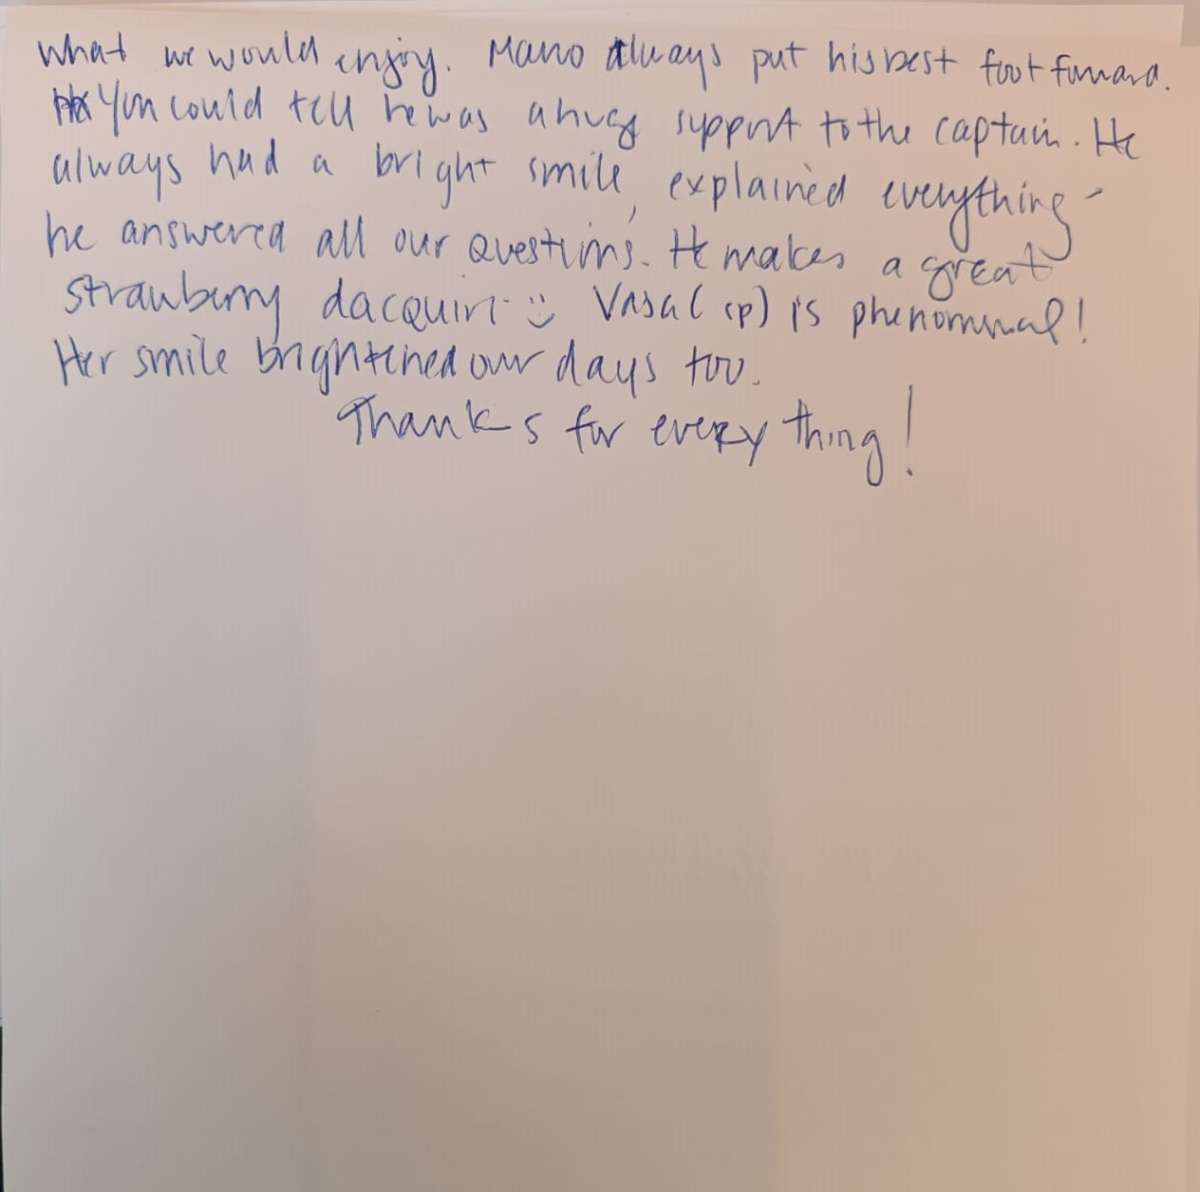 what we would enjoy. Mano Always put his best foot forward.
You could tell he was a huge support to the captain. He
always had a bright smile, explained everything -
he answered all our questions. He makes a great
strawberry dacquiri :) Vasa (sp) is phenominal!
Her smile brightened our days too.
Thanks for every thing!